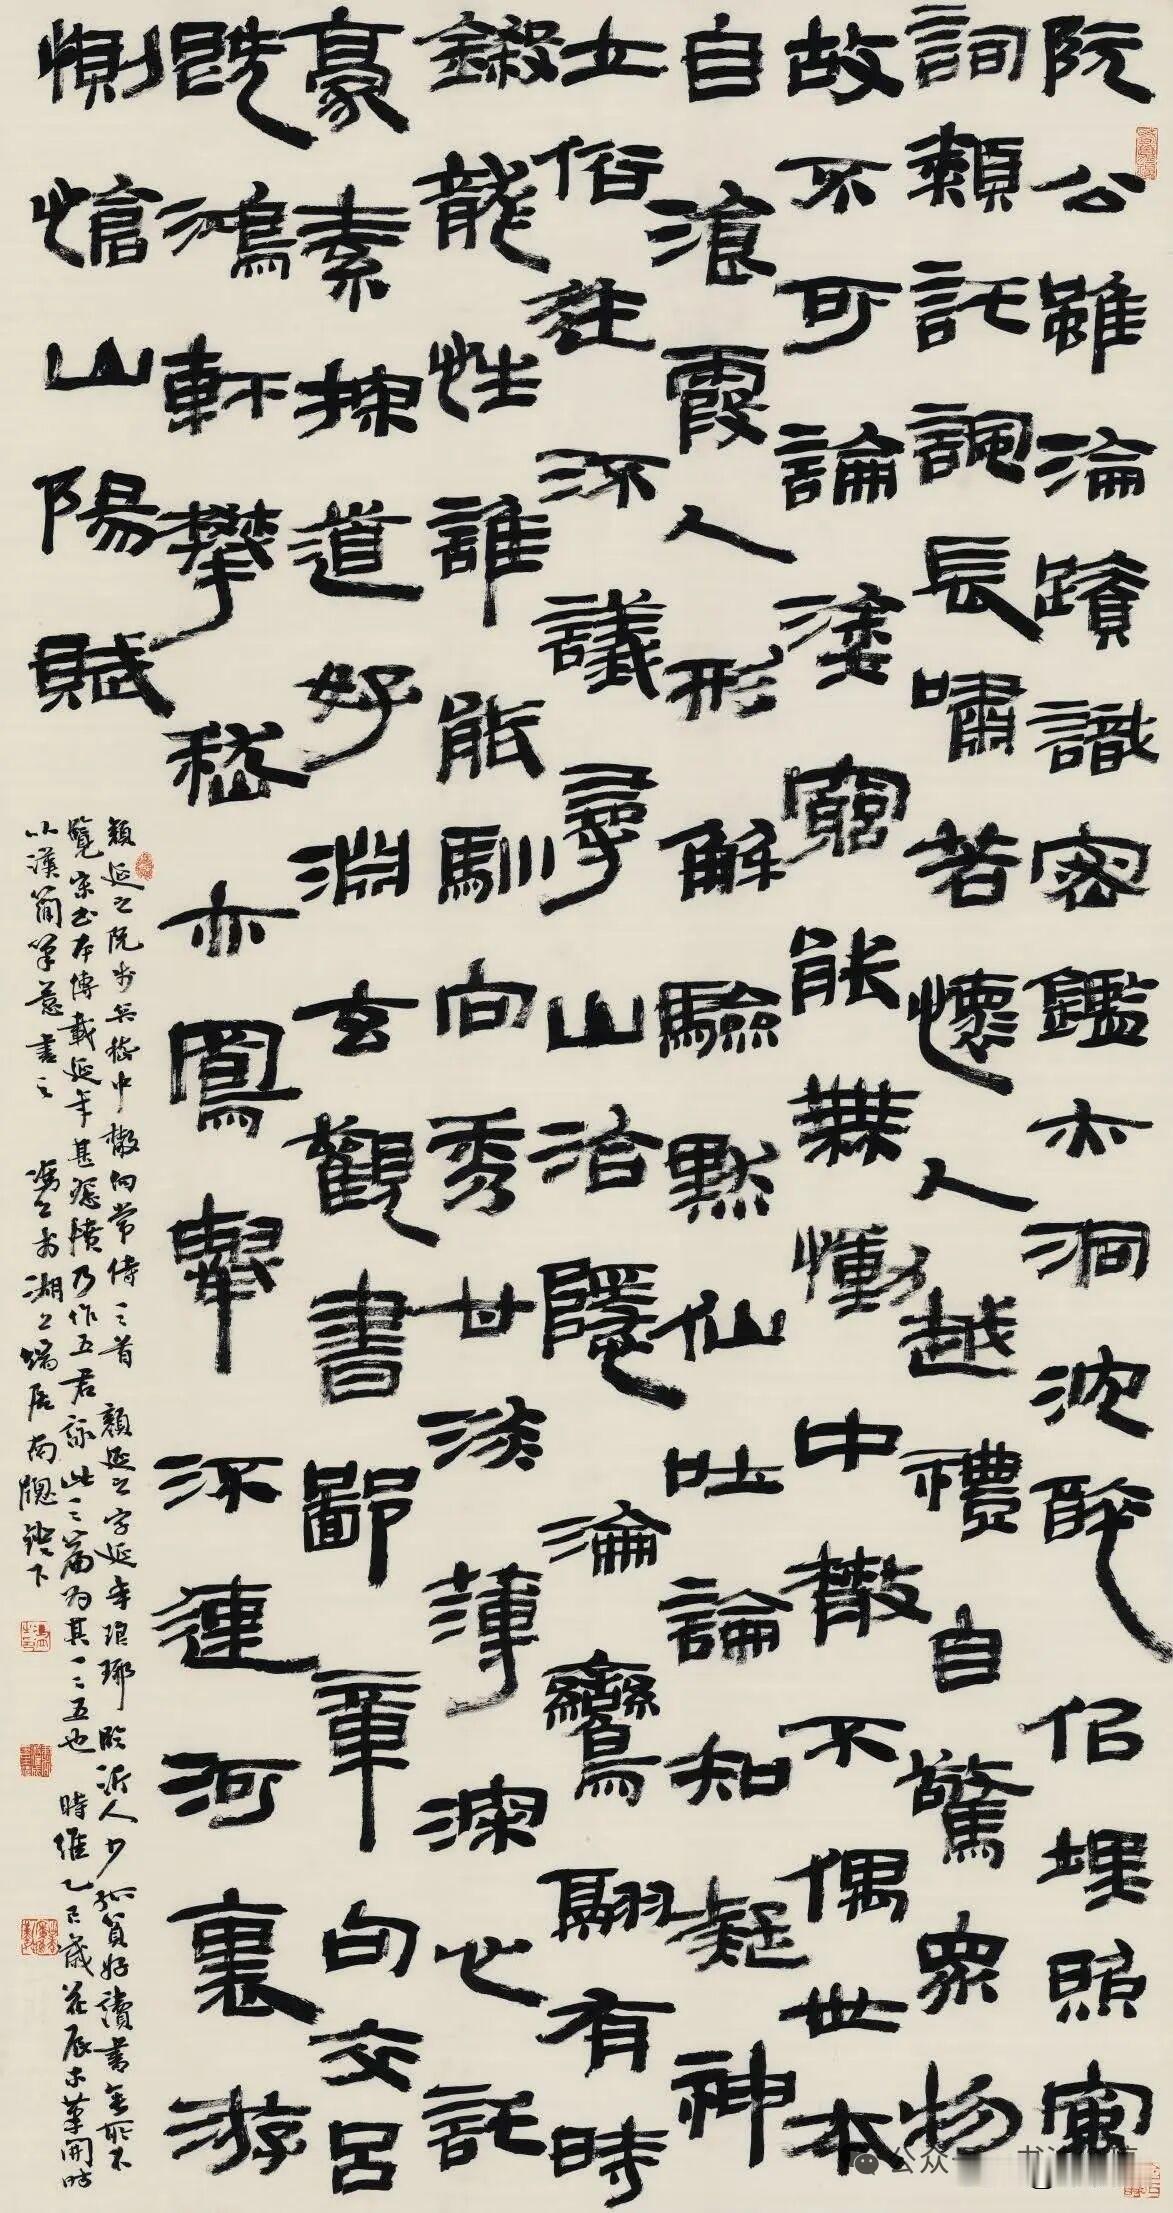 阮公雖淪蹟識密鑑亦洞沈醉佀埋照寓
詞類託諷長嘯若懷人越禮自驚眾物
故不可論塗窮能無慟中散不偶世本
自湌霞人形解驗默仙吐論知凝神
立俗迕流議尋山洽隱淪鸞翮有時
鎩龍性誰能馴向秀甘淡薄深心託
豪素探道好淵玄觀書鄙章句交呂
既鴻軒攀嵇亦鳳舉流連河裏游
惻愴山陽賦
顏延之阮步兵嵇中散向常侍三首 顏延之字延年琅琊臨沂人少孤貧好讀書無所不
覽宋書本傳載延年甚怨憤乃作五君詠此三篇為其一二五也 時維乙巳歲花辰木筆開時
以漢簡筆意書之 湖上端居南牕鐙下
公众 书法